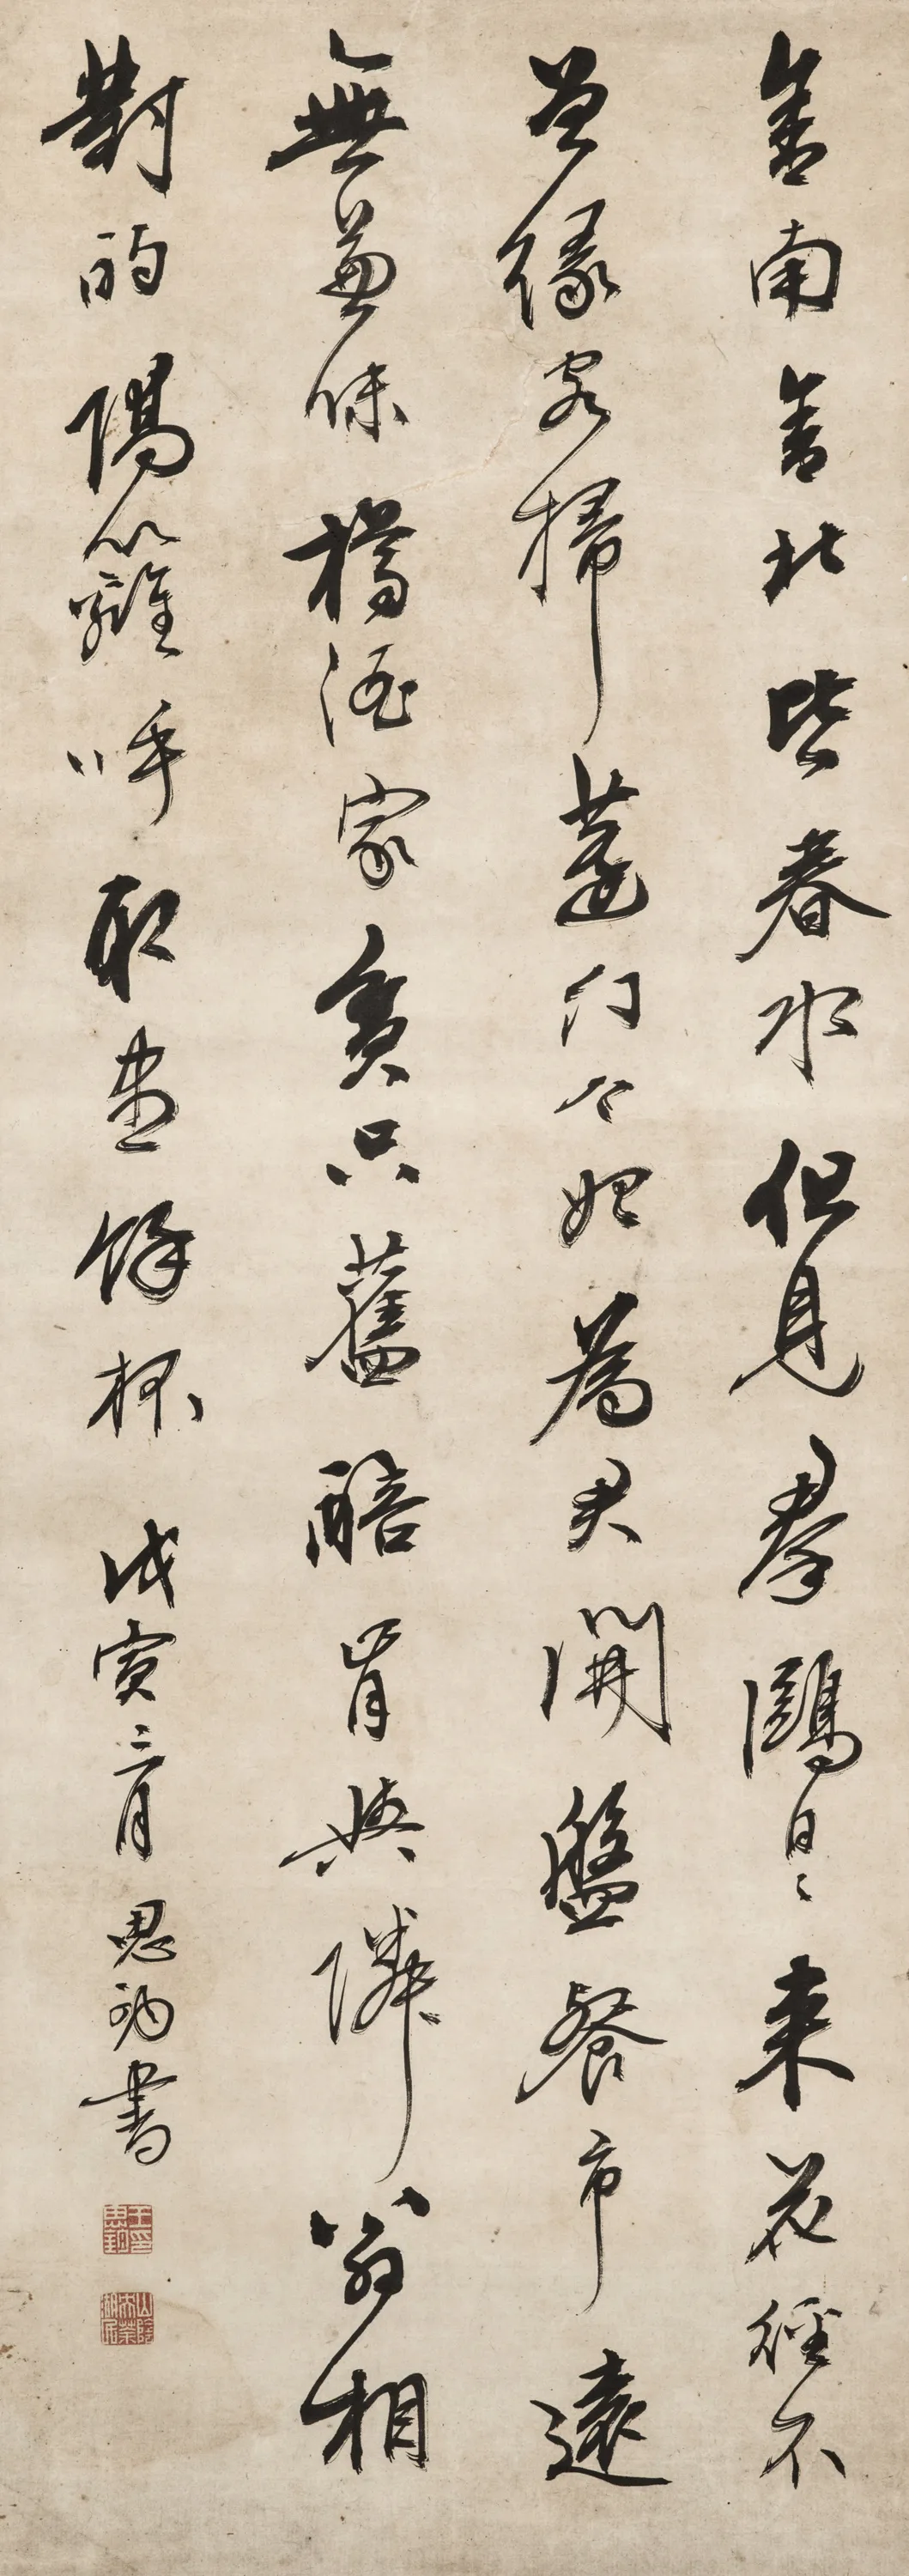 舍南舍北皆春水但見羣鷗日〻來花徑不
曾緣客掃蓬門今始為君開盤餐市遠
無兼味樽酒家貧只舊醅肯與隣翁相
對酌隔籬呼取盡餘杯 戊寅三月 思書